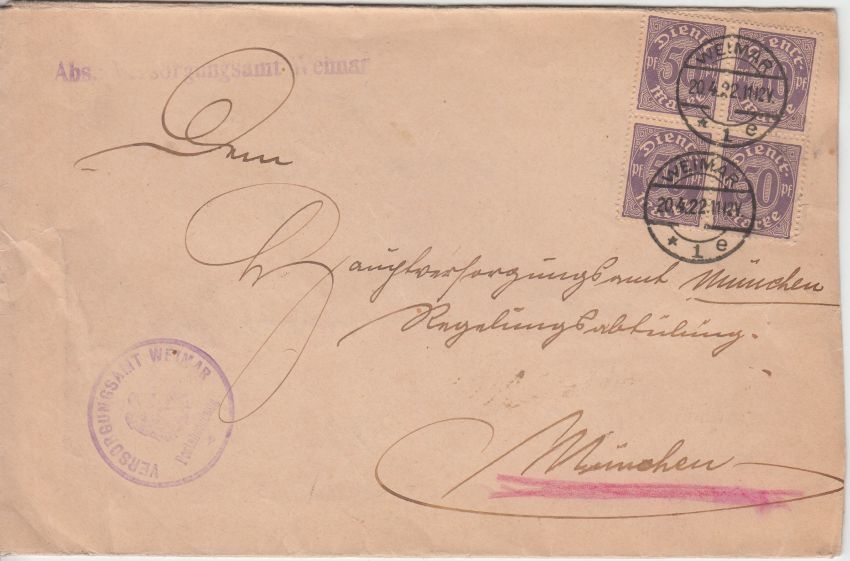 Abs.: Versorgungsamt Weimar
Dienst-
50
Pf
Marke
Dienst-
Pf
Dienst-
Marke
Dienst-
50
Pf
Marke
WEIMAR
20.4.22.11-12V.
* 1 e
WEIMAR
20.4.22.11-12V.
* 1 e
Dem
Hauptversorgungsamt München
Regelungsabteilung.
München
VERSORGUNGSAMT WEIMAR